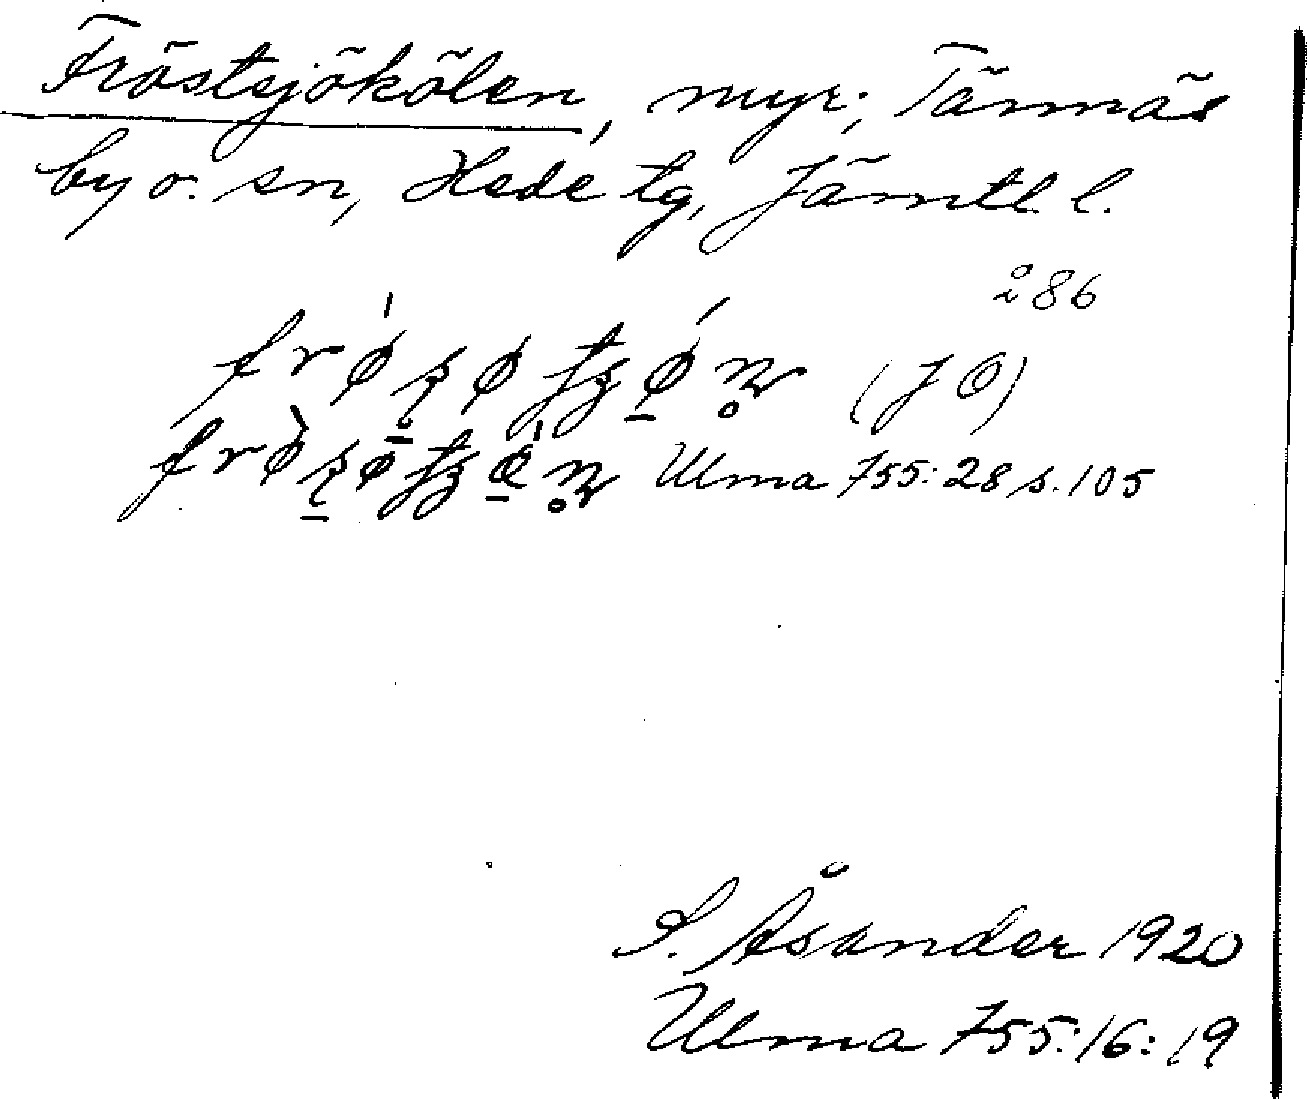 Fröstsjökölen, myr; Tännäs
by o. sn, Hede tg, Jämtl. l.
286
(JÖ)
Ulma 755:28 s.105
S. Åsander 1920
Ulma 755:16:19